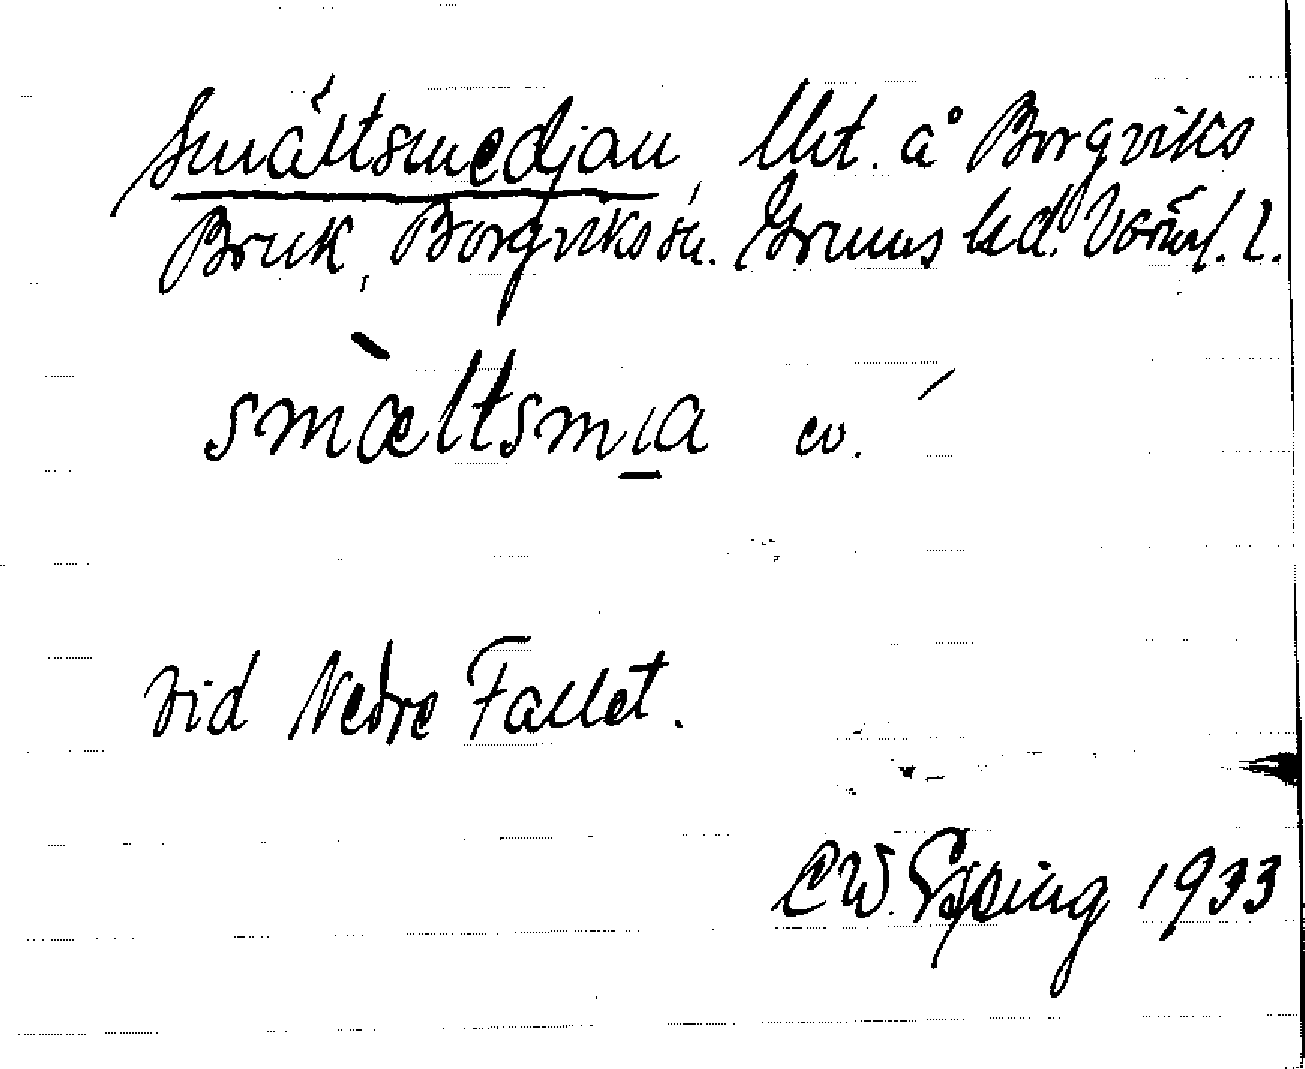 Smältsmedjan, Uht. å Borgviks
Bruk, Borgviks sn. Grums hd. Värml. l.
smæltsmia co.
vid Nedre Fallet.
CW. Epping 1933